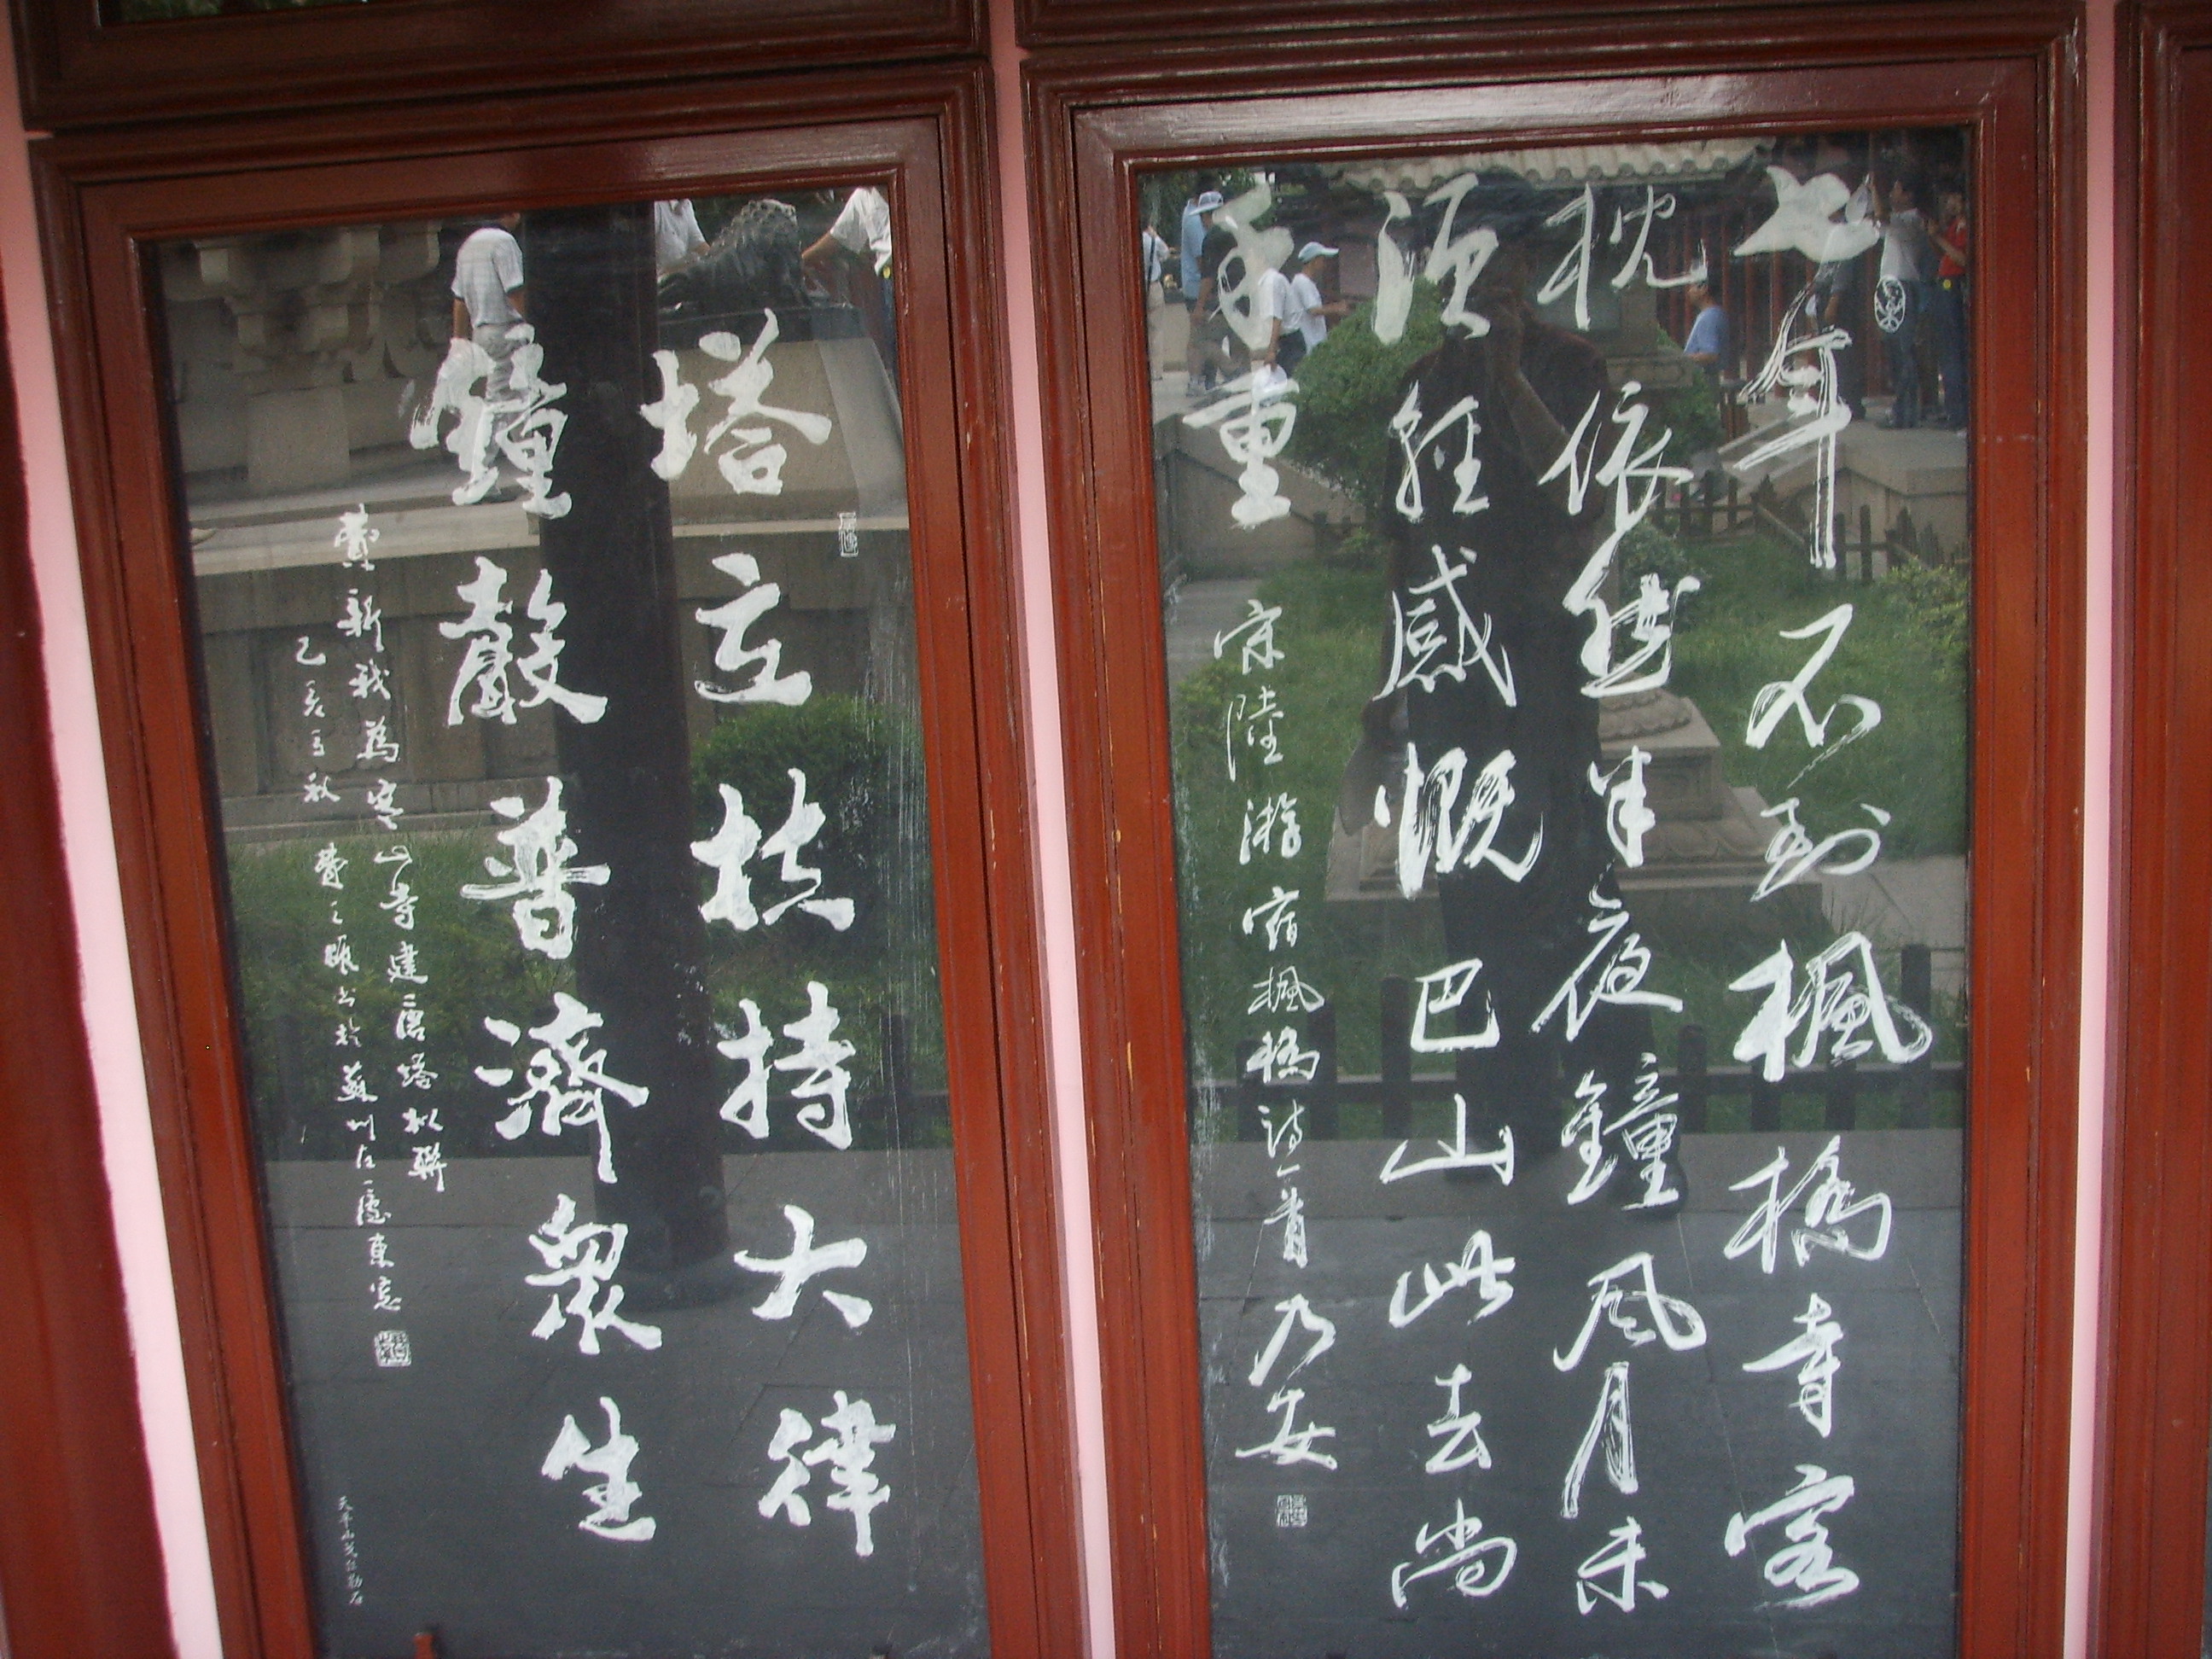 七年不到楓橋寺客
枕依然半夜鐘風月未
須輕感慨巴山此去尚
千重
宋陸游宿楓橋詩一首 乃安
塔立扶持大律
鐘聲普濟衆生
費新我為寒山寺建唐塔拟聯
乙亥之秋費之雄書於蘇州左隱東窓